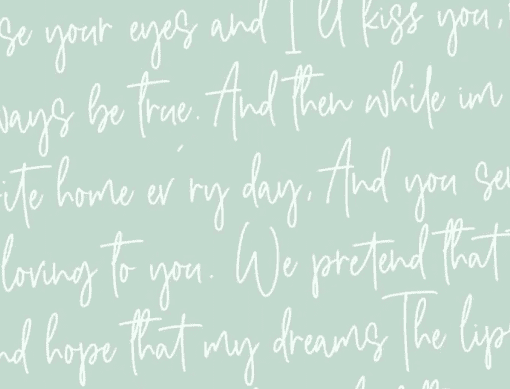 se your eyes and I'll kiss you,
ways be true. And then while im
ite home ev'ry day, And you se
loving to you. We pretend that
nd hope that my dreams The lip